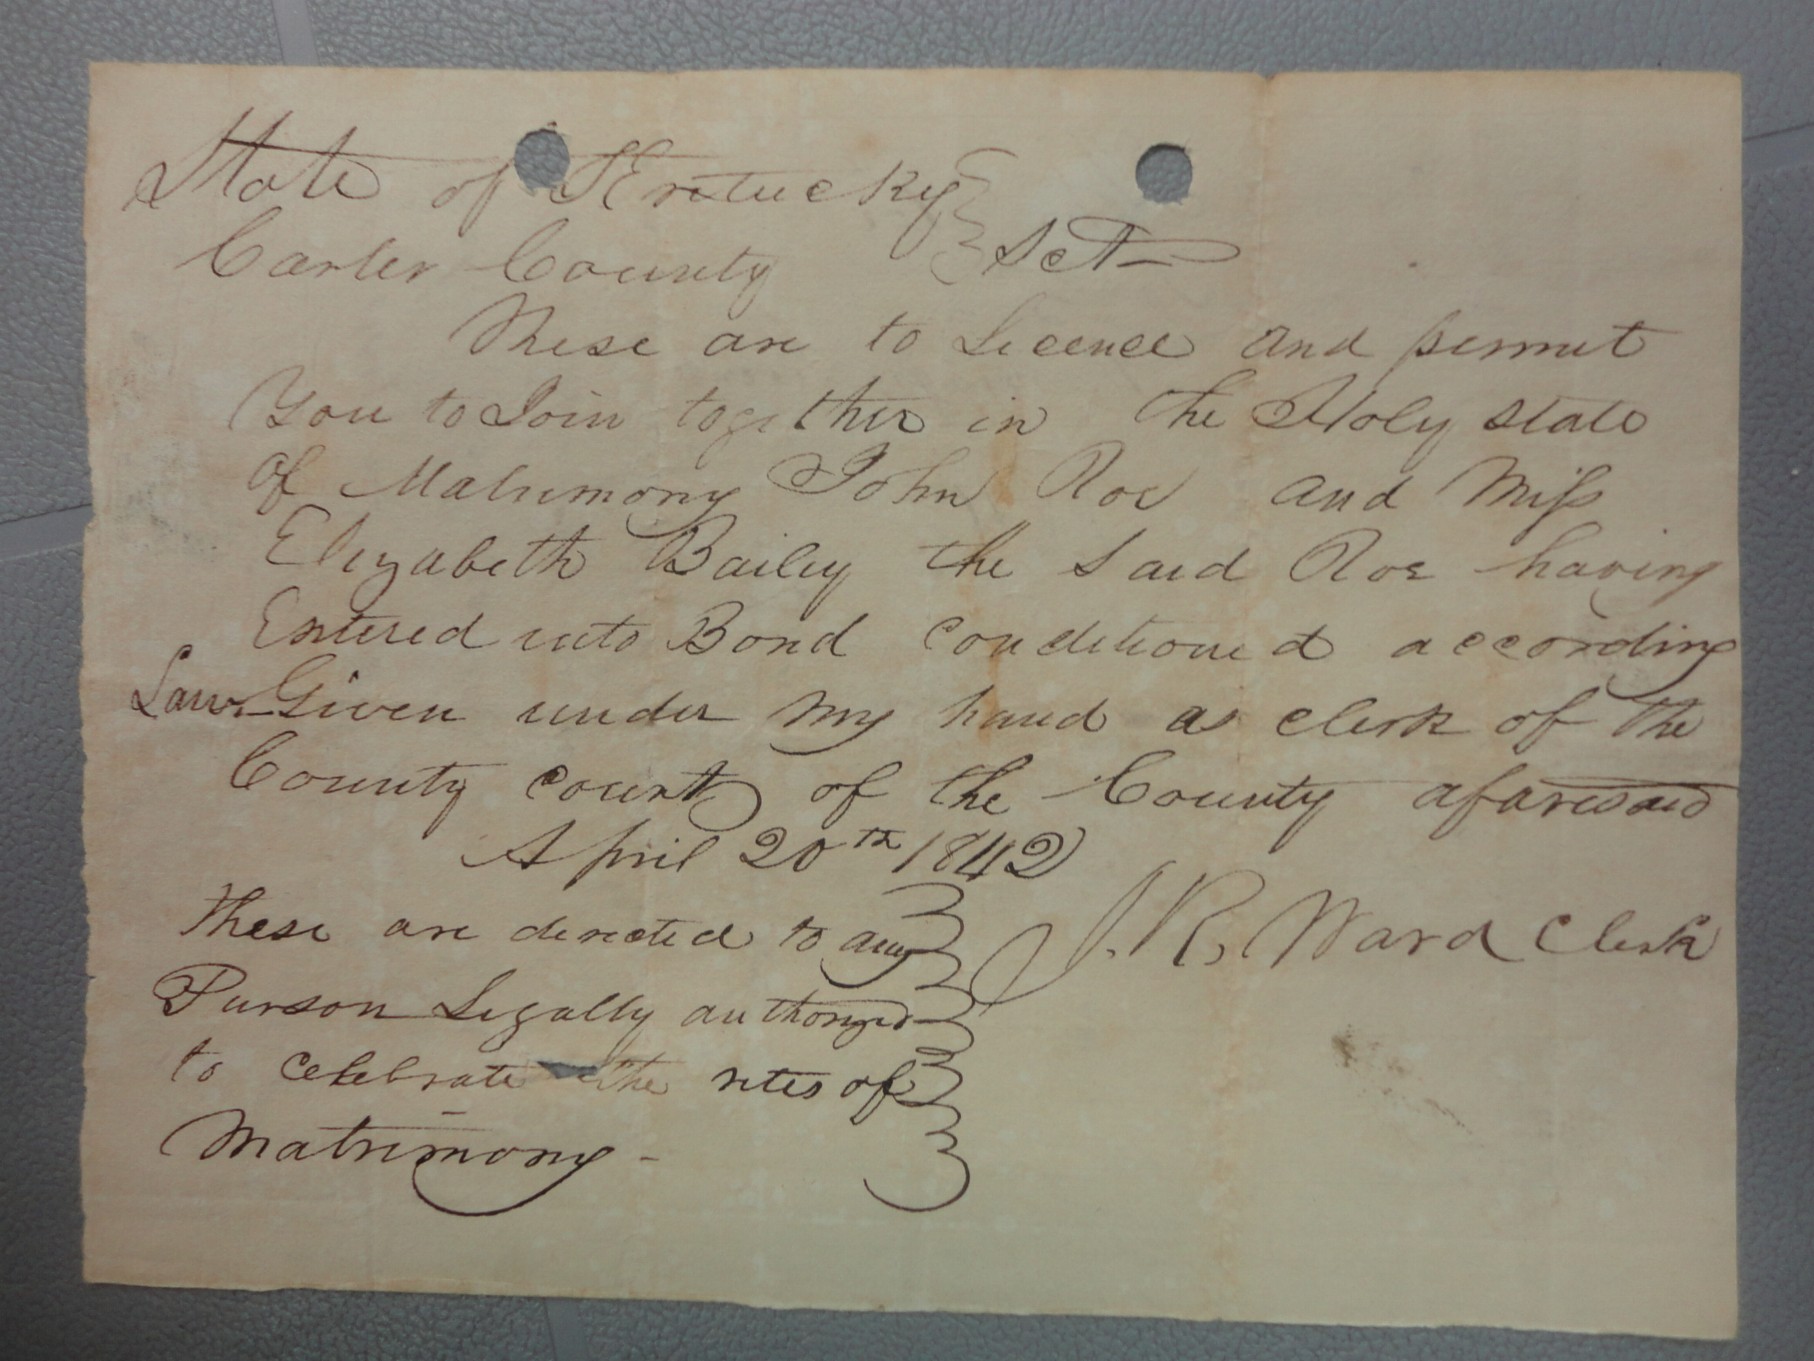 State of Kentucky
Carter County } Sct
These are to Licence and permit
You to Join together in the Holy state
of Matrimony John Roe and Miss
Elizabeth Bailey the Said Roe having
Entered into Bond conditioned according
Law. Given under my hand as clerk of the
County court of the County aforesaid
April 20th 1842
J. R. Ward Clerk
These are directed to any
Purson Legally authorized
to celebrate the rites of
Matrimony -